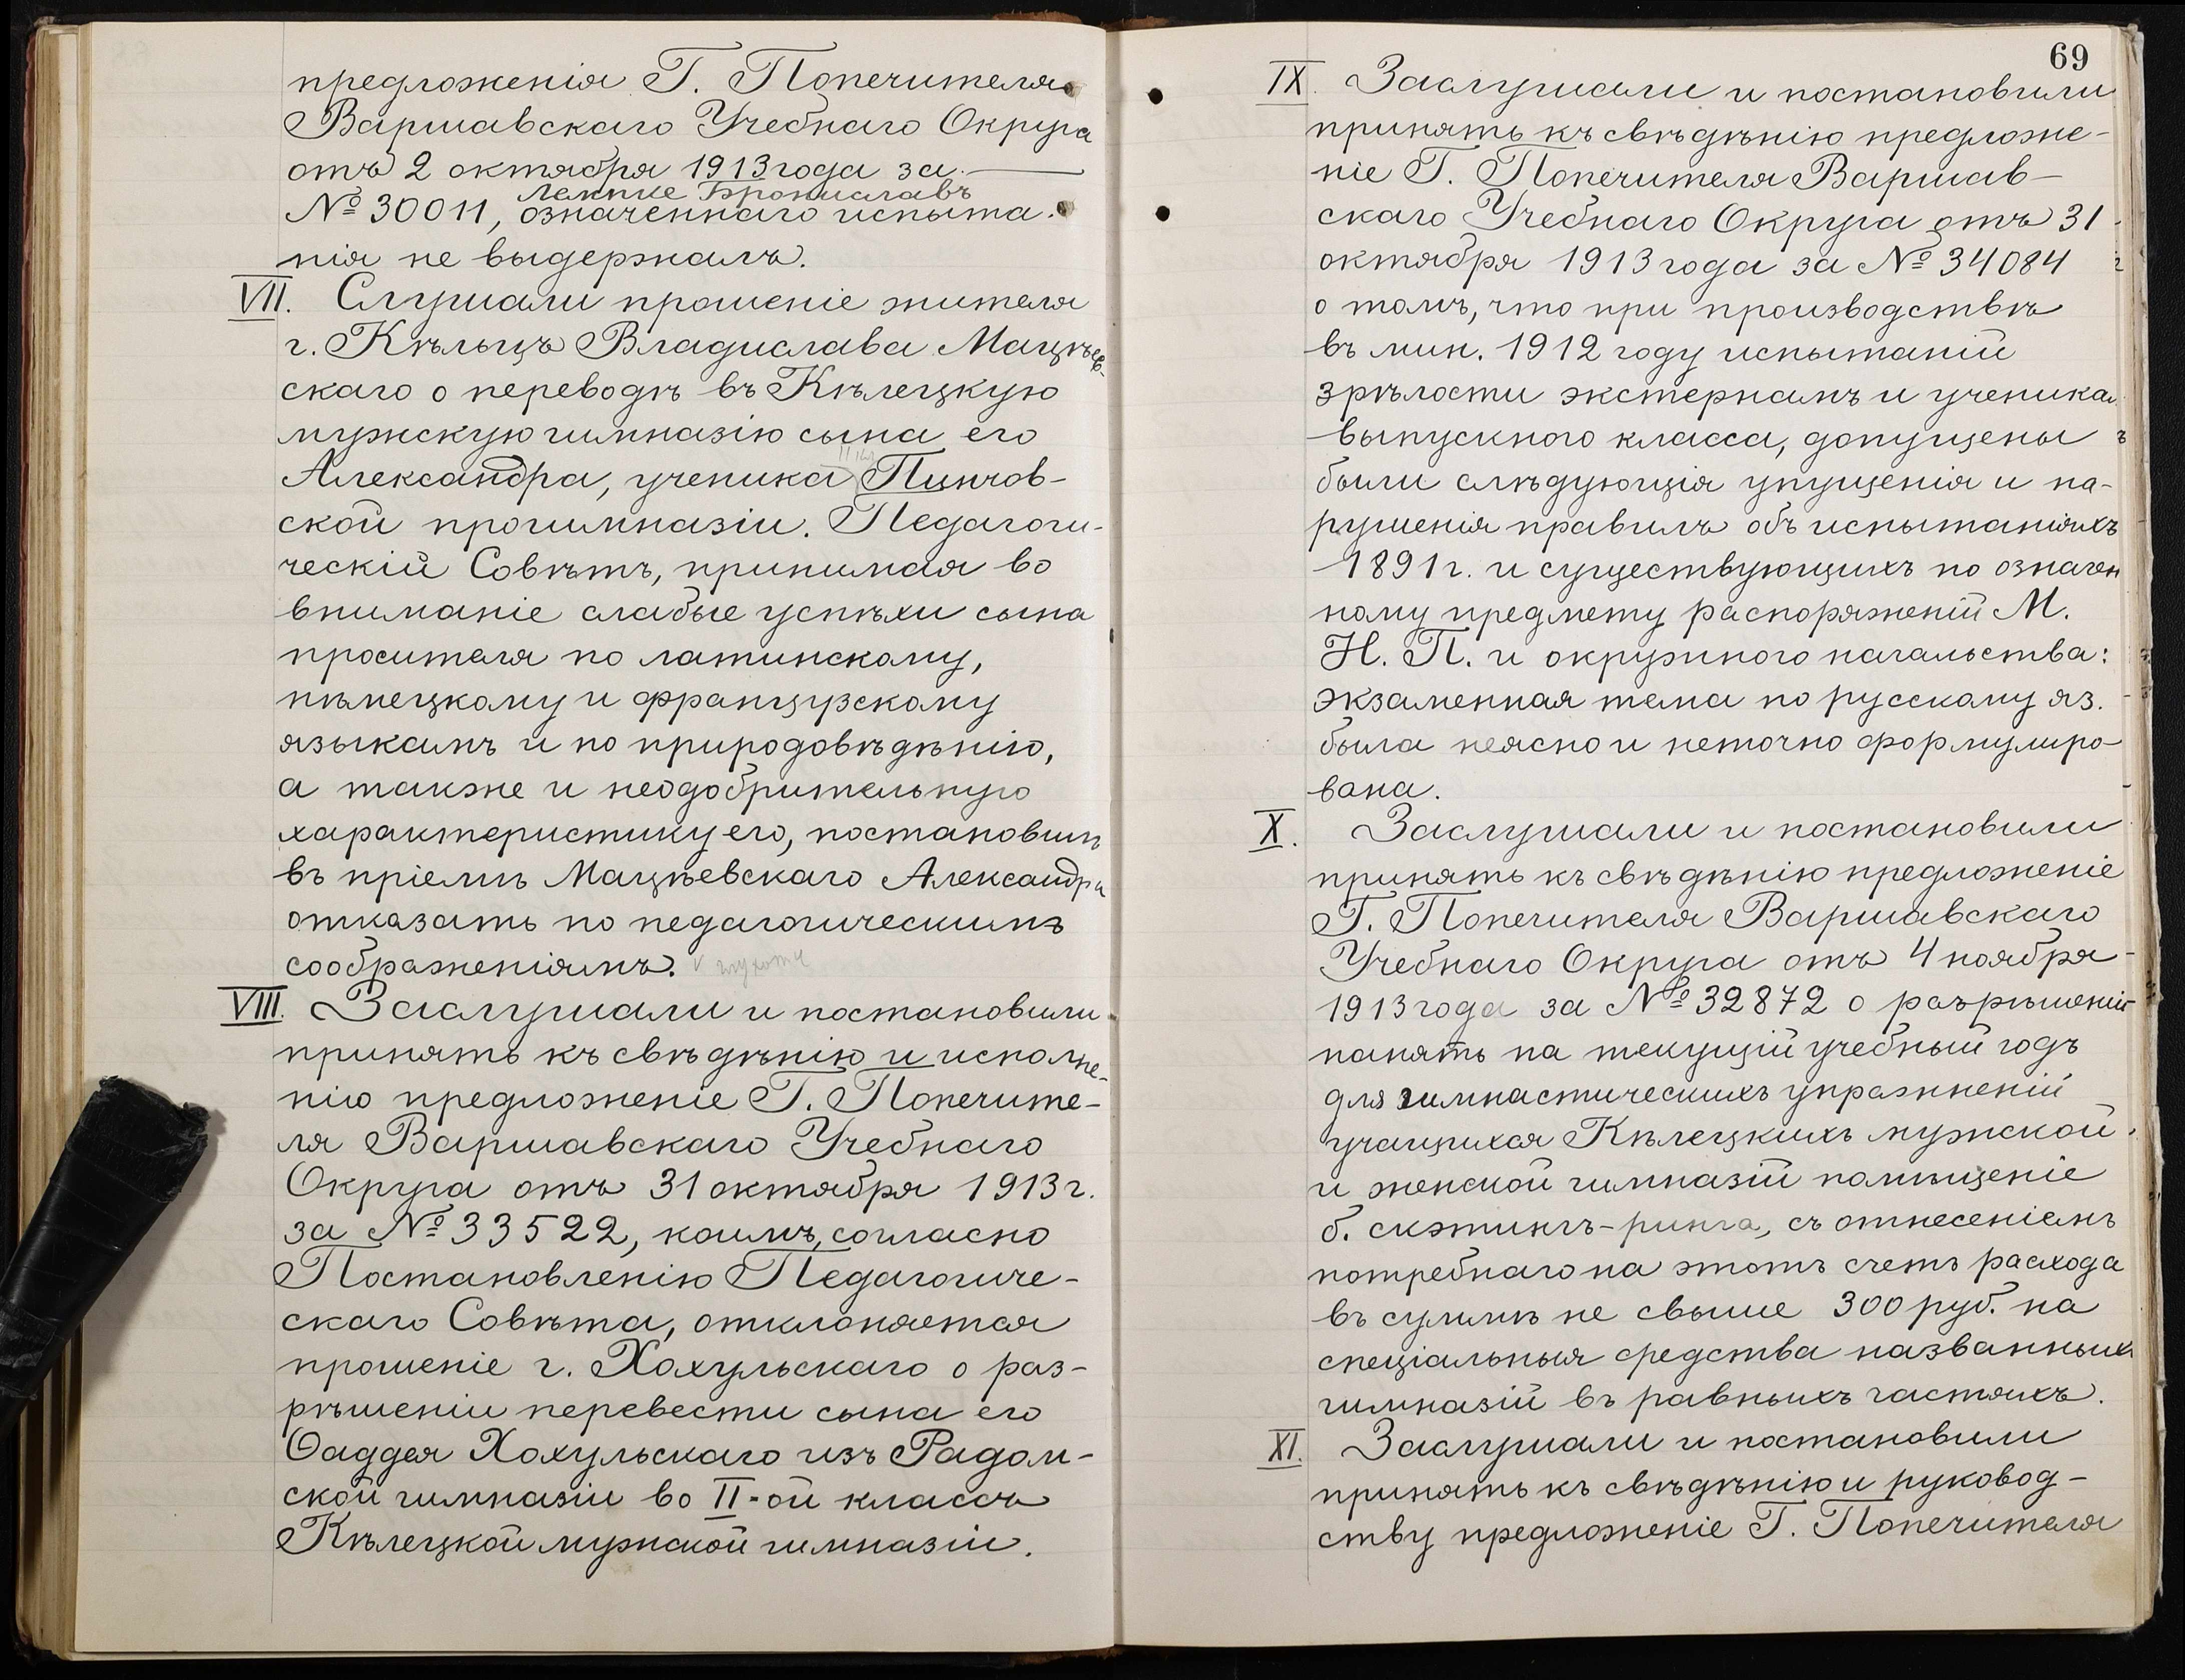 предложенія Г. Попечителя
Варшавскаго Учебнаго Округа
отъ 2 октября 1913 года за
Лемпке Брониславъ
№ 30011, означеннаго испыта-
нія не выдержалъ.
VII. Слушали прошеніе жителя
г. Кѣльцъ Владислава Мацѣев-
скаго о переводѣ въ Кѣлецкую
мужскую гимназію сына его
Александра, ученика Пинчов-
ской прогимназіи. Педагоги-
ческій Совѣтъ, принимая во
вниманіе слабые успѣхи сына
просителя по латинскому,
нѣмецкому и французскому
языкамъ и по природовѣдѣнію,
а также и неодобрительную
характеристику его, постановилъ
въ пріемѣ Мацѣевскаго Александра
отказать по педагогическимъ
соображеніямъ.
VIII. Заслушали и постановили
принять къ свѣдѣнію и исполне-
нію предложеніе Г. Попечите-
ля Варшавскаго Учебнаго
Округа отъ 31 октября 1913 г.
за № 33522, коимъ, согласно
Постановленію Педагогиче-
скаго Совѣта, отклоняется
прошеніе г. Хохульскаго о раз-
рѣшеніи перевести сына его
Ѳаддея Хохульскаго изъ Радом-
ской гимназіи во II-ой классъ
Кѣлецкой мужской гимназіи.
69
IX. Заслушали и постановили
принять къ свѣдѣнію предложе-
ніе Г. Попечителя Варшав-
скаго Учебнаго Округа отъ 31
октября 1913 года за № 34084
о томъ, что при производствѣ
въ мин. 1912 году испытаній
зрѣлости экстернамъ и ученика
выпускного класса, допущены
были слѣдующія упущенія и на-
рушенія правилъ объ испытаніяхъ
1891 г. и существующихъ по означен
ному предмету распоряженій М.
Н. П. и окружного начальства:
экзаменная тема по русскому яз.
была неясно и неточно формулиро-
вана.
X. Заслушали и постановили
принять къ свѣдѣнію предложеніе
Г. Попечителя Варшавскаго
Учебнаго Округа отъ 4 ноября
1913 года за № 32872 о разрѣшеніи
нанять на текущій учебный годъ
для гимнастическихъ упражненій
учащихся Кѣлецкихъ мужской
и женской гимназій помѣщеніе
б. скэтингъ-ринга, съ отнесеніемъ
потребнаго на этотъ счетъ расхода
въ суммѣ не свыше 300 руб. на
спеціальныя средства названныхъ
гимназій въ равныхъ частяхъ.
XI. Заслушали и постановили
принять къ свѣдѣнію и руковод-
ству предложеніе Г. Попечителя